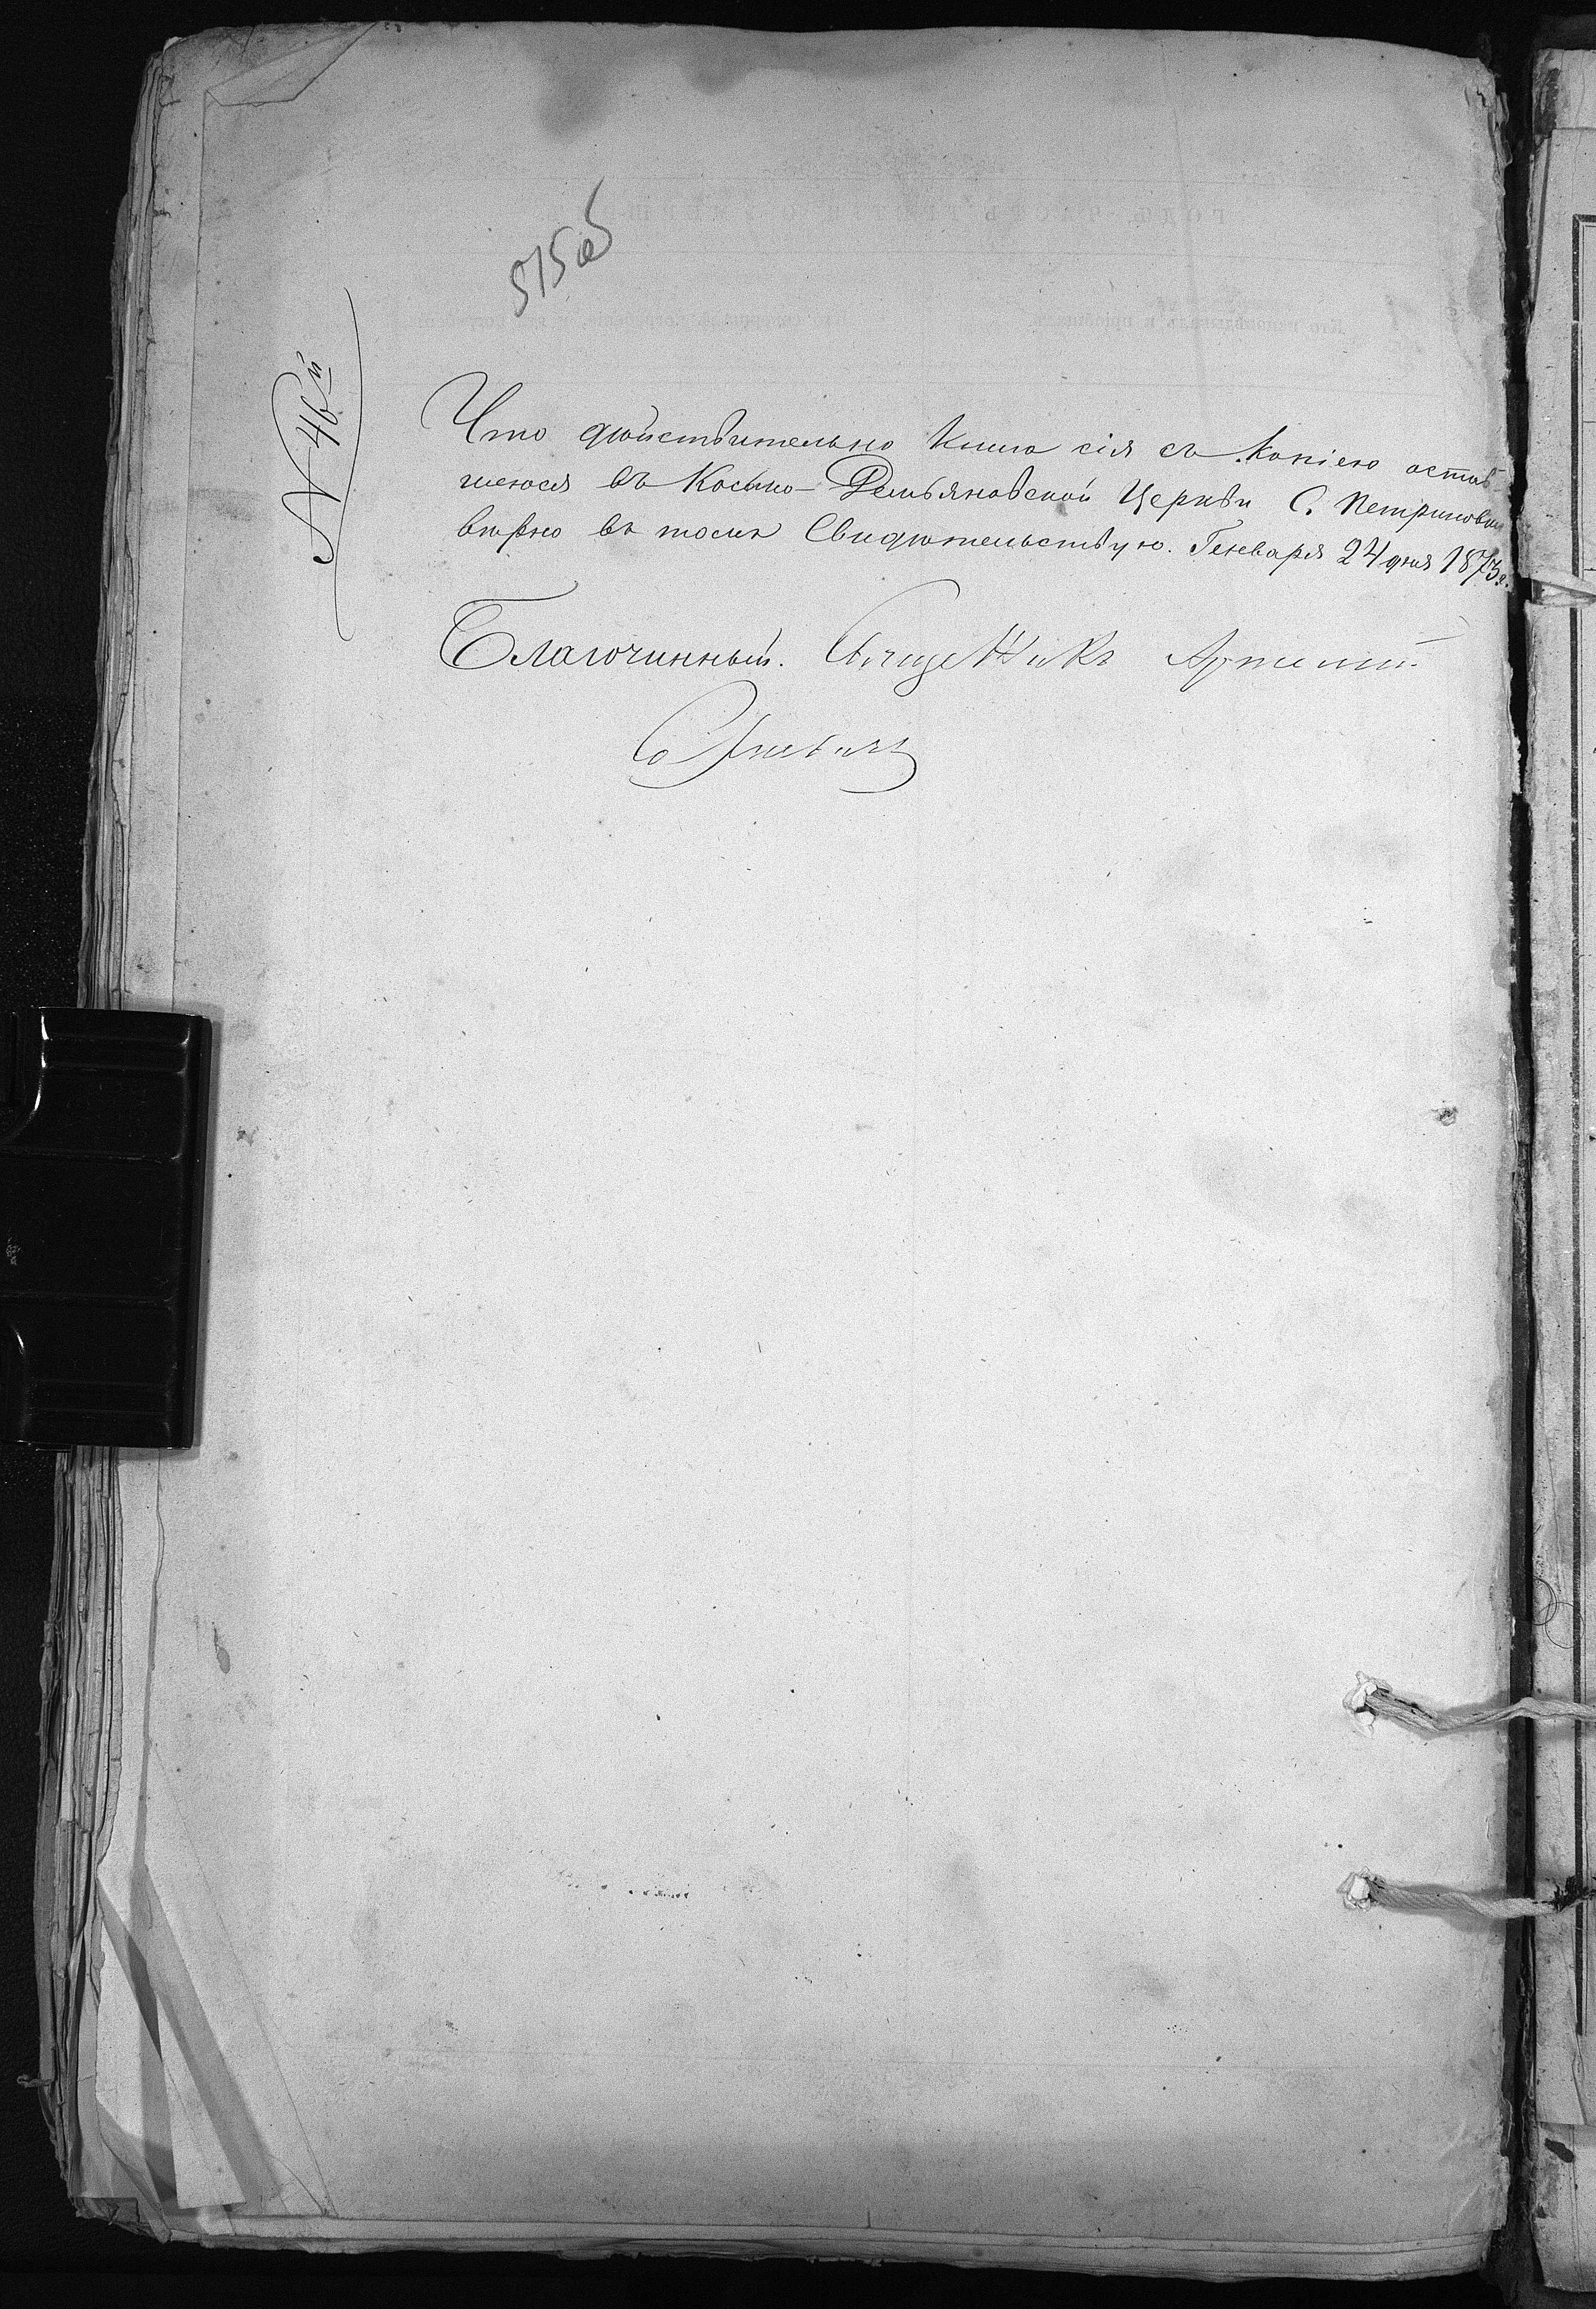 515об
N 46й
Что дѣйствительно Книга сія съ Копіею остав
шеюся въ Космо-Демьяновской Церкви С. Петриковки
вѣрно въ томъ Свидѣтельствую. Генваря 24 дня 1873 г.
Благочинный. Священникъ Артемій